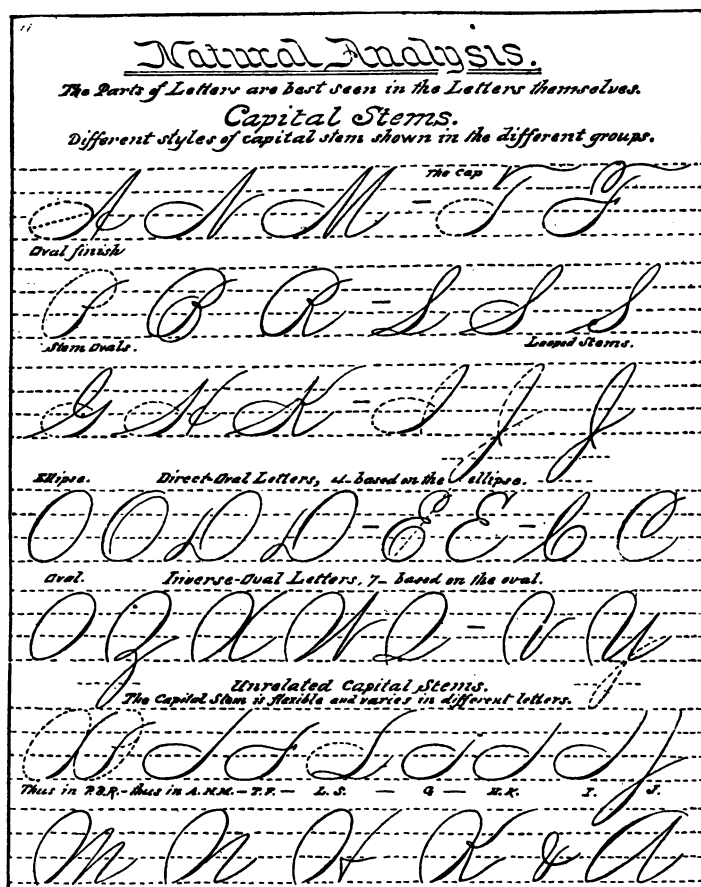 11
Natural Analysis.
The Parts of Letters are best seen in the Letters themselves.
Capital Stems.
Different styles of capital stem shown in the different groups.
The Cap
A N M – T F
Oval finish
P B R – L S S
Stem Ovals. Looped Stems.
G H K – I J J
Ellipse. Direct-Oval Letters, based on the ellipse.
O O D D – E E – C C
Oval. Inverse-Oval Letters, 7– based on the oval.
O Z X W Q – V Y
Unrelated Capital Stems.
The Capital Stem is flexible and varies in different letters.
Thus in P.B.R.– thus in A.N.M.– T.F.– L.S. – G – H.K. I. J.
M N H K & A